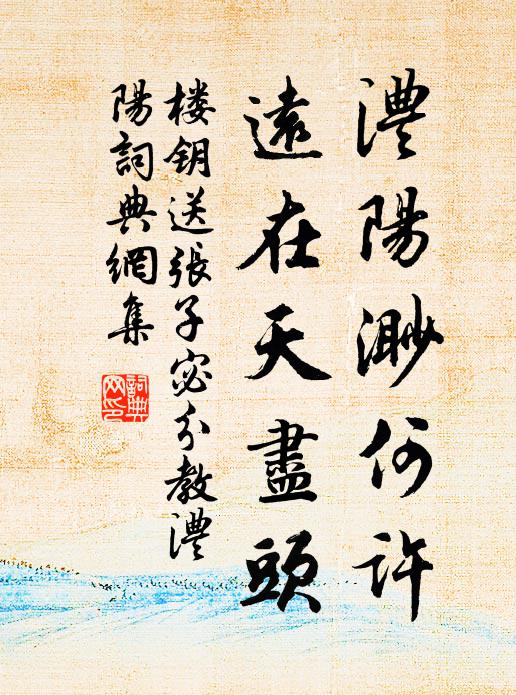 澧陽渺何許
遠在天盡頭
楼钥送張子宓分教澧
陽詞典網集
詞典
网印